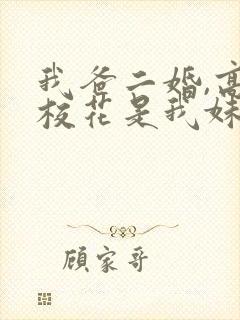 我爸二婚,高
校花是我妹
顾家哥